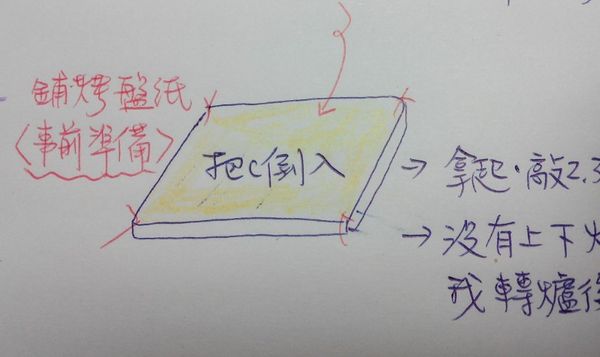 鋪烤盤紙
<事前準備>
把C倒入
→ 拿起,敲2.3
→ 沒有上下火
我轉爐後